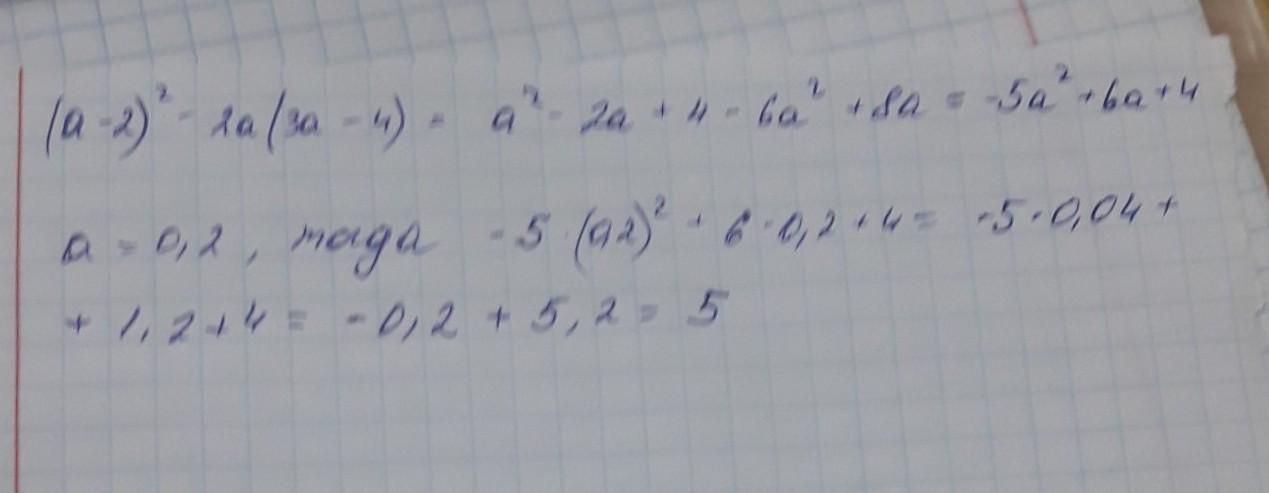 (a - 2)² - 2a(3a - 4) = a² - 2a + 4 - 6a² + 8a = -5a² + 6a + 4
a = 0,2, тада -5·(0,2)² + 6·0,2 + 4 = -5·0,04 +
+ 1,2 + 4 = -0,2 + 5,2 = 5